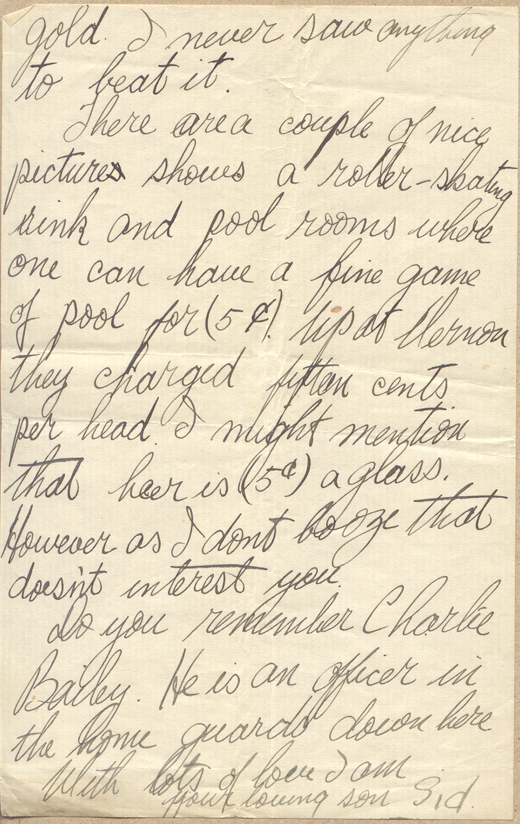 gold. I never saw anything
to beat it.
There are a couple of nice
pictures shows a roller-skating
rink and pool rooms where
one can have a fine game
of pool for (5¢). Up at Vernon
they charged fiften cents
per head. I might mention
that beer is (5¢) a glass.
However as I dont booze that
doesn't interest you.
Do you remember Charlie
Bailey. He is an officer in
the home guards down here
With lots of love I am
your loving son Sid.